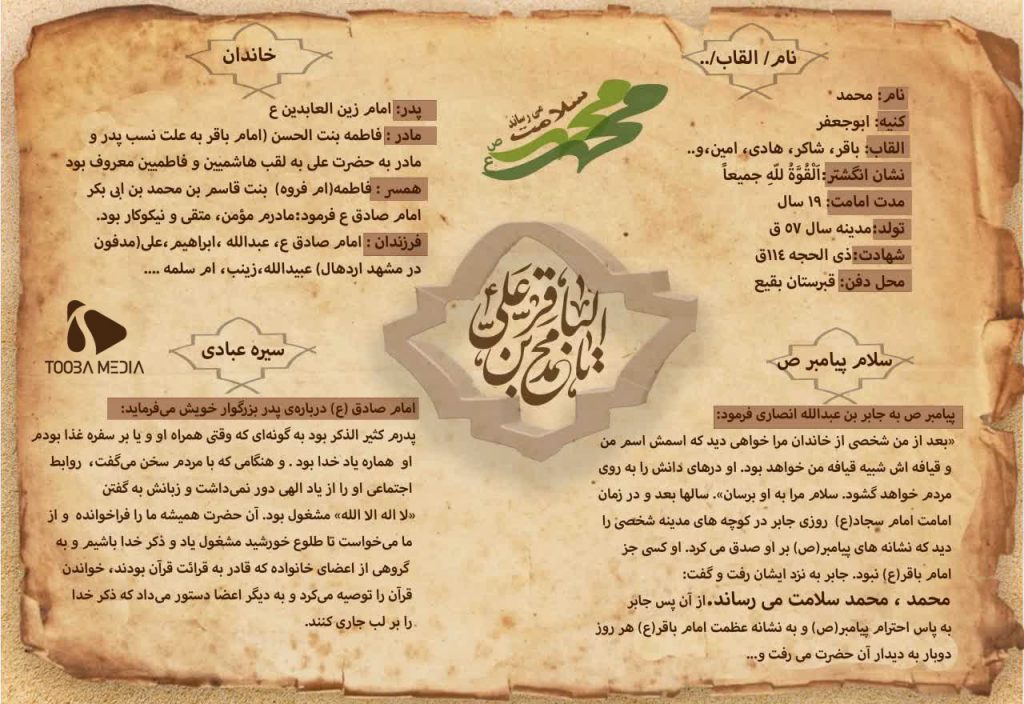 نام/ القاب/..
نام: محمد
کنیه: ابوجعفر
القاب: باقر، شاکر، هادی، امین،و..
نشان انگشتر:اَلْقُوَّةُ للّهِ جمیعاً
مدت امامت: ۱۹ سال
تولد:مدینه سال ۵۷ ق
شهادت:ذی الحجه ۱۱۴ق
محل دفن: قبرستان بقیع
محمد
سلامت می رساند
ص
ع
خاندان
پدر: امام زین العابدین ع
مادر : فاطمه بنت الحسن (امام باقر به علت نسب پدر و
مادر به حضرت علی به لقب هاشمیین و فاطمیین معروف بود
همسر : فاطمه(ام فروه) بنت قاسم بن محمد بن ابی بکر
امام صادق ع فرمود:مادرم مؤمن، متقی و نیکوکار بود.
فرزندان : امام صادق ع، عبدالله ،ابراهیم،علی(مدفون
در مشهد اردهال) عبیدالله،زینب، ام سلمه ....
محمد بن علی الباقر
سلام پیامبر ص
پیامبر ص به جابر بن عبدالله انصاری فرمود:
«بعد از من شخصی از خاندان مرا خواهی دید که اسمش اسم من
و قیافه اش شبیه قیافه من خواهد بود. او درهای دانش را به روی
مردم خواهد گشود. سلام مرا به او برسان». سالها بعد و در زمان
امامت امام سجاد(ع) روزی جابر در کوچه های مدینه شخصی را
دید که نشانه های پیامبر(ص) بر او صدق می کرد. او کسی جز
امام باقر(ع) نبود. جابر به نزد ایشان رفت و گفت:
محمد ، محمد سلامت می رساند.از آن پس جابر
به پاس احترام پیامبر(ص) و به نشانه عظمت امام باقر(ع) هر روز
دوبار به دیدار آن حضرت می رفت و...
TOOBA MEDIA
سیره عبادی
امام صادق (ع) درباره‌ی پدر بزرگوار خویش می‌فرماید:
پدرم کثیر الذکر بود به گونه‌ای که وقتی همراه او و یا بر سفره غذا بودم
او هماره یاد خدا بود . و هنگامی که با مردم سخن می‌گفت، روابط
اجتماعی او را از یاد الهی دور نمی‌داشت و زبانش به گفتن
«لا اله الا الله» مشغول بود. آن حضرت همیشه ما را فراخوانده و از
ما می‌خواست تا طلوع خورشید مشغول یاد و ذکر خدا باشیم و به
گروهی از اعضای خانواده که قادر به قرائت قرآن بودند، خواندن
قرآن را توصیه می‌کرد و به دیگر اعضا دستور می‌داد که ذکر خدا
را بر لب جاری کنند.